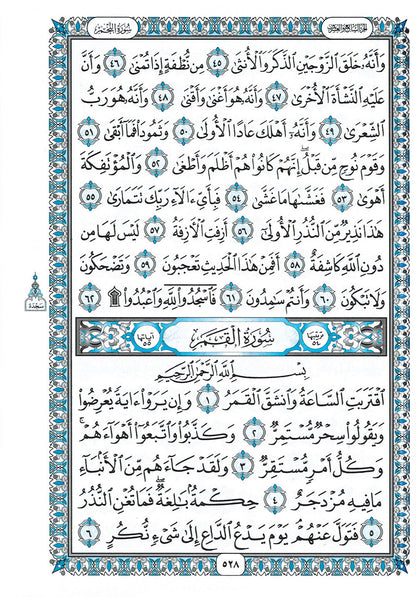 الجزء السابع والعشرون سورة النجم
وَأَنَّهُۥ خَلَقَ ٱلزَّوْجَيْنِ ٱلذَّكَرَ وَٱلْأُنثَىٰ ٤٥ مِن نُّطْفَةٍ إِذَا تُمْنَىٰ ٤٦ وَأَنَّ
عَلَيْهِ ٱلنَّشْأَةَ ٱلْأُخْرَىٰ ٤٧ وَأَنَّهُۥ هُوَ أَغْنَىٰ وَأَقْنَىٰ ٤٨ وَأَنَّهُۥ هُوَ رَبُّ
ٱلشِّعْرَىٰ ٤٩ وَأَنَّهُۥٓ أَهْلَكَ عَادًا ٱلْأُولَىٰ ٥٠ وَثَمُودَا۟ فَمَآ أَبْقَىٰ ٥١
وَقَوْمَ نُوحٍ مِّن قَبْلُ ۖ إِنَّهُمْ كَانُوا۟ هُمْ أَظْلَمَ وَأَطْغَىٰ ٥٢ وَٱلْمُؤْتَفِكَةَ
أَهْوَىٰ ٥٣ فَغَشَّىٰهَا مَا غَشَّىٰ ٥٤ فَبِأَىِّ ءَالَآءِ رَبِّكَ تَتَمَارَىٰ ٥٥
هَٰذَا نَذِيرٌ مِّنَ ٱلنُّذُرِ ٱلْأُولَىٰٓ ٥٦ أَزِفَتِ ٱلْءَازِفَةُ ٥٧ لَيْسَ لَهَا مِن
دُونِ ٱللَّهِ كَاشِفَةٌ ٥٨ أَفَمِنْ هَٰذَا ٱلْحَدِيثِ تَعْجَبُونَ ٥٩ وَتَضْحَكُونَ
وَلَا تَبْكُونَ ٦٠ وَأَنتُمْ سَٰمِدُونَ ٦١ فَٱسْجُدُوا۟ لِلَّهِ وَٱعْبُدُوا۟ ۩ ٦٢
سجدة
ترتيبها ٥٤ سُورَةُ القَمَر آياتها ٥٥
بِسْمِ ٱللَّهِ ٱلرَّحْمَٰنِ ٱلرَّحِيمِ
ٱقْتَرَبَتِ ٱلسَّاعَةُ وَٱنشَقَّ ٱلْقَمَرُ ١ وَإِن يَرَوْا۟ ءَايَةً يُعْرِضُوا۟
وَيَقُولُوا۟ سِحْرٌ مُّسْتَمِرٌّ ٢ وَكَذَّبُوا۟ وَٱتَّبَعُوٓا۟ أَهْوَآءَهُمْ ۚ
وَكُلُّ أَمْرٍ مُّسْتَقِرٌّ ٣ وَلَقَدْ جَآءَهُم مِّنَ ٱلْأَنۢبَآءِ
مَا فِيهِ مُزْدَجَرٌ ٤ حِكْمَةٌۢ بَٰلِغَةٌ ۖ فَمَا تُغْنِ ٱلنُّذُرُ
٥ فَتَوَلَّ عَنْهُمْ ۘ يَوْمَ يَدْعُ ٱلدَّاعِ إِلَىٰ شَىْءٍ نُّكُرٍ ٦
٥٢٨